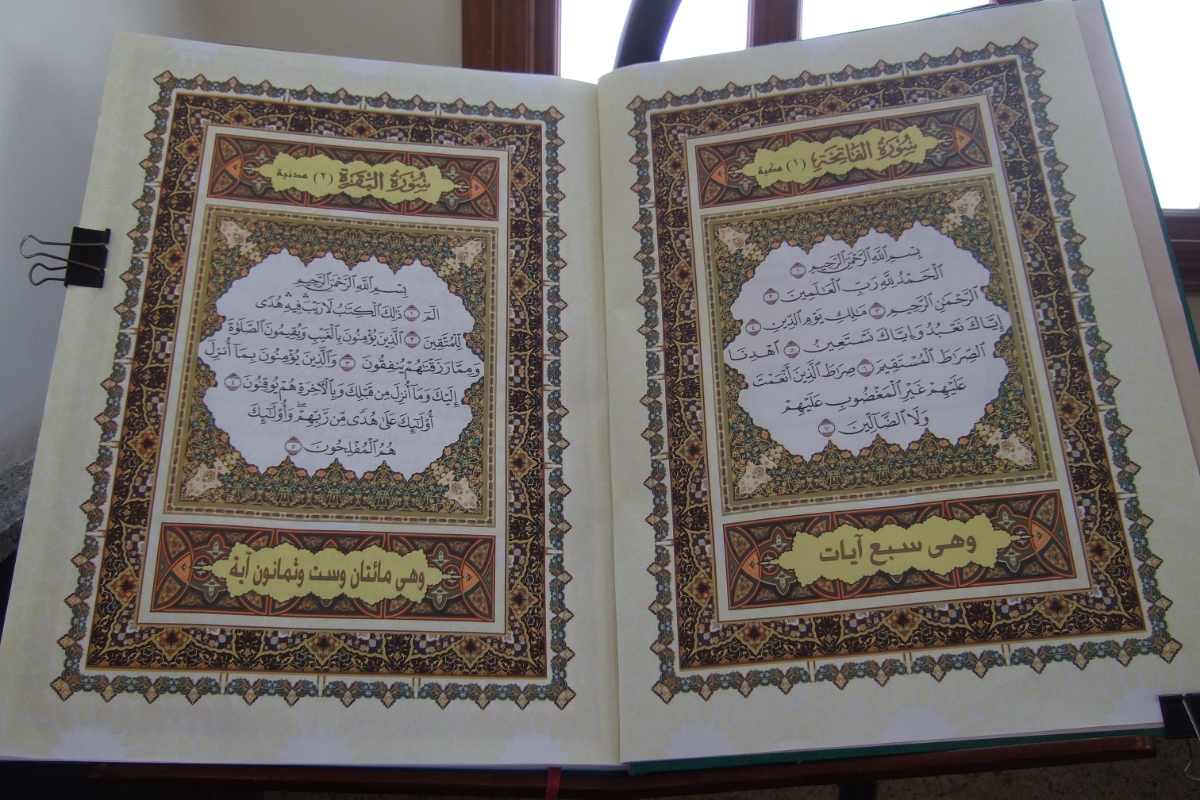 سُورَةُ الفَاتِحَةِ (١) مكية
بِسْمِ ٱللَّهِ ٱلرَّحْمَٰنِ ٱلرَّحِيمِ ١
ٱلْحَمْدُ لِلَّهِ رَبِّ ٱلْعَٰلَمِينَ ٢
ٱلرَّحْمَٰنِ ٱلرَّحِيمِ ٣ مَٰلِكِ يَوْمِ ٱلدِّينِ ٤
إِيَّاكَ نَعْبُدُ وَإِيَّاكَ نَسْتَعِينُ ٥ ٱهْدِنَا
ٱلصِّرَٰطَ ٱلْمُسْتَقِيمَ ٦ صِرَٰطَ ٱلَّذِينَ أَنْعَمْتَ
عَلَيْهِمْ غَيْرِ ٱلْمَغْضُوبِ عَلَيْهِمْ
وَلَا ٱلضَّآلِّينَ ٧
وهى سبع آيات
سُورَةُ البَقَرَةِ (٢) مدنية
بِسْمِ ٱللَّهِ ٱلرَّحْمَٰنِ ٱلرَّحِيمِ
الٓمٓ ١ ذَٰلِكَ ٱلْكِتَٰبُ لَا رَيْبَ ۛ فِيهِ ۛ هُدًى
لِّلْمُتَّقِينَ ٢ ٱلَّذِينَ يُؤْمِنُونَ بِٱلْغَيْبِ وَيُقِيمُونَ ٱلصَّلَوٰةَ
وَمِمَّا رَزَقْنَٰهُمْ يُنفِقُونَ ٣ وَٱلَّذِينَ يُؤْمِنُونَ بِمَآ أُنزِلَ
إِلَيْكَ وَمَآ أُنزِلَ مِن قَبْلِكَ وَبِٱلْأَخِرَةِ هُمْ يُوقِنُونَ ٤
أُو۟لَٰٓئِكَ عَلَىٰ هُدًى مِّن رَّبِّهِمْ ۖ وَأُو۟لَٰٓئِكَ
هُمُ ٱلْمُفْلِحُونَ ٥
وهى مائتان وست وثمانون آية